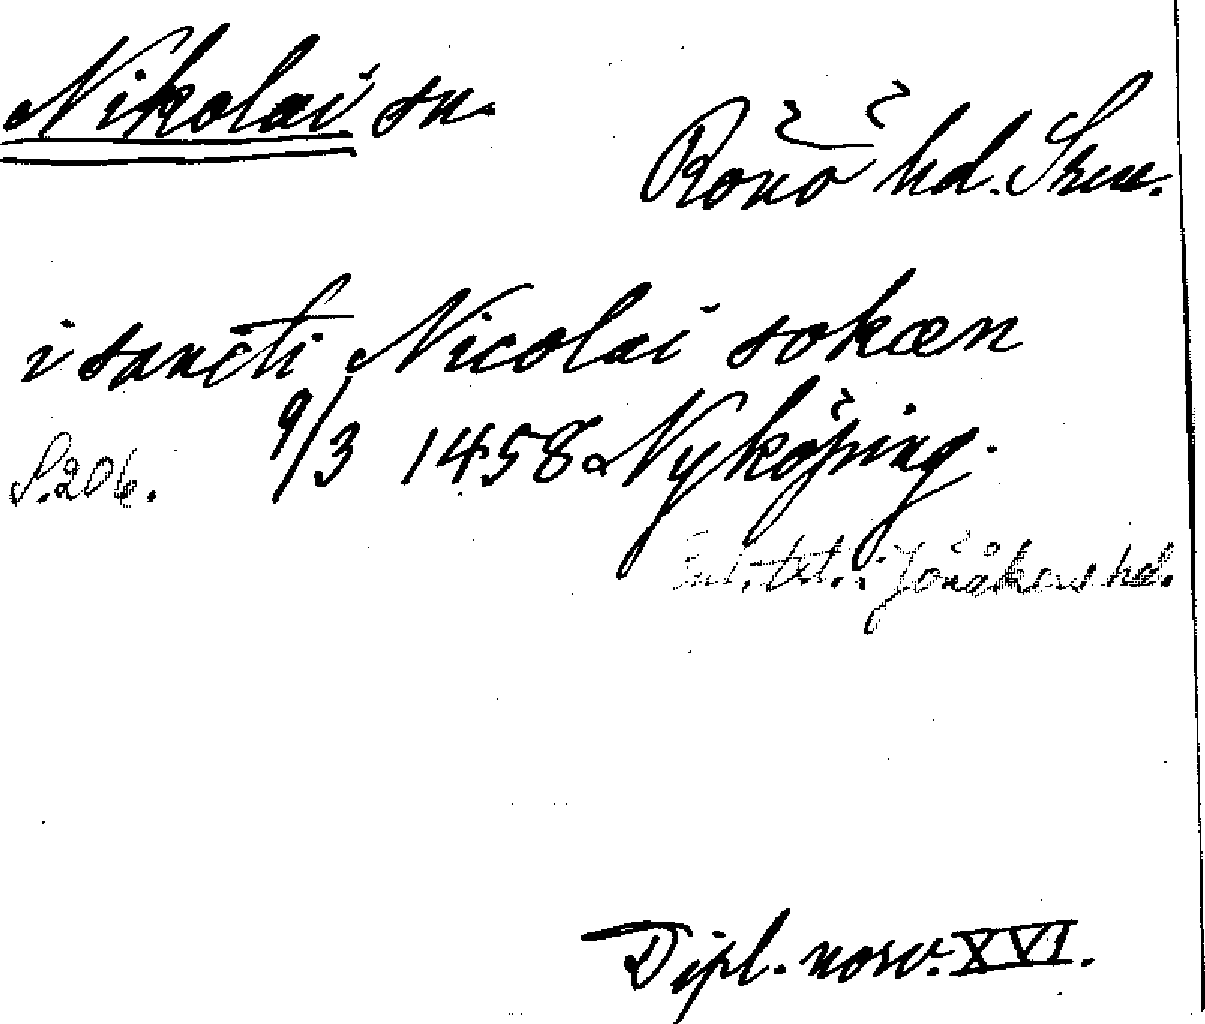 Nikolai sn.
Rönö hd. Srm.
i sancti Nicolai sokæn
S. 206. 9/3 1458 Nyköping.
Enl. tkt.: Jönåkers hd.
Dipl. norv. XVI.